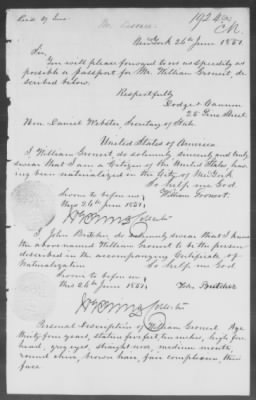 1924
New York 24th June 1851.
Sir,
You will please forward to us as speedily as
possible a Passport for Mr. William Gronert, de
scribed below.
Respectfully
Dodge & Cannon
25 Pine Street
Hon. Daniel Webster, Secretary of State
United States of America
I William Gronert, do solemnly, sincerely and truly
swear that I am a Citizen of the United States hav
ing been naturalized in the City of New York
So help me God.
William Gronert.
Sworn to before me
this 24th June 1851
I, John Butcher, do solemnly swear that I know
the above named William Gronert to be the person
described in the accompanying Certificate of
Naturalization
So help me God
Sworn to before me
this 24th June 1851
Butcher
Personal Description of William Gronert Age
thirty four years, stature five feet, ten inches, high fore
head, grey eyes, straight nose, medium mouth,
round chin, brown hair, fair complexion, thin
face